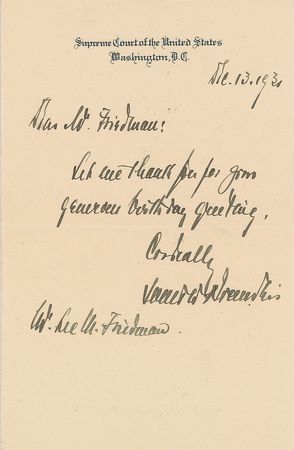 Supreme Court of the United States
Washington, D.C.
Dec. 13. 1931
Dear Mr. Friedman:
Let me thank you for your
generous birthday greeting.
Cordially
Louis D Brandeis
Mr. Lee M. Friedman.